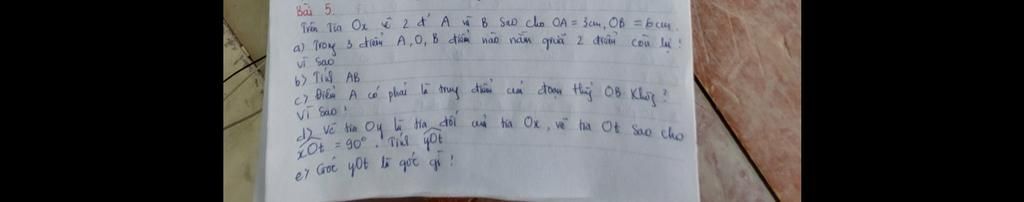 Bài 5.
Trên tia Ox vẽ 2 đ' A và B sao cho OA = 3cm, OB = 6cm.
a) Trong 3 điểm A, O, B điểm nào nằm giữa 2 điểm còn lại?
Vì sao
b) Tính AB
c) Điểm A có phải là trung điểm của đoạn thẳng OB không?
Vì sao?
d) Vẽ tia Oy là tia đối của tia Ox, vẽ tia Ot sao cho
xOt = 90°. Tính yOt
e) Góc yOt là góc gì?